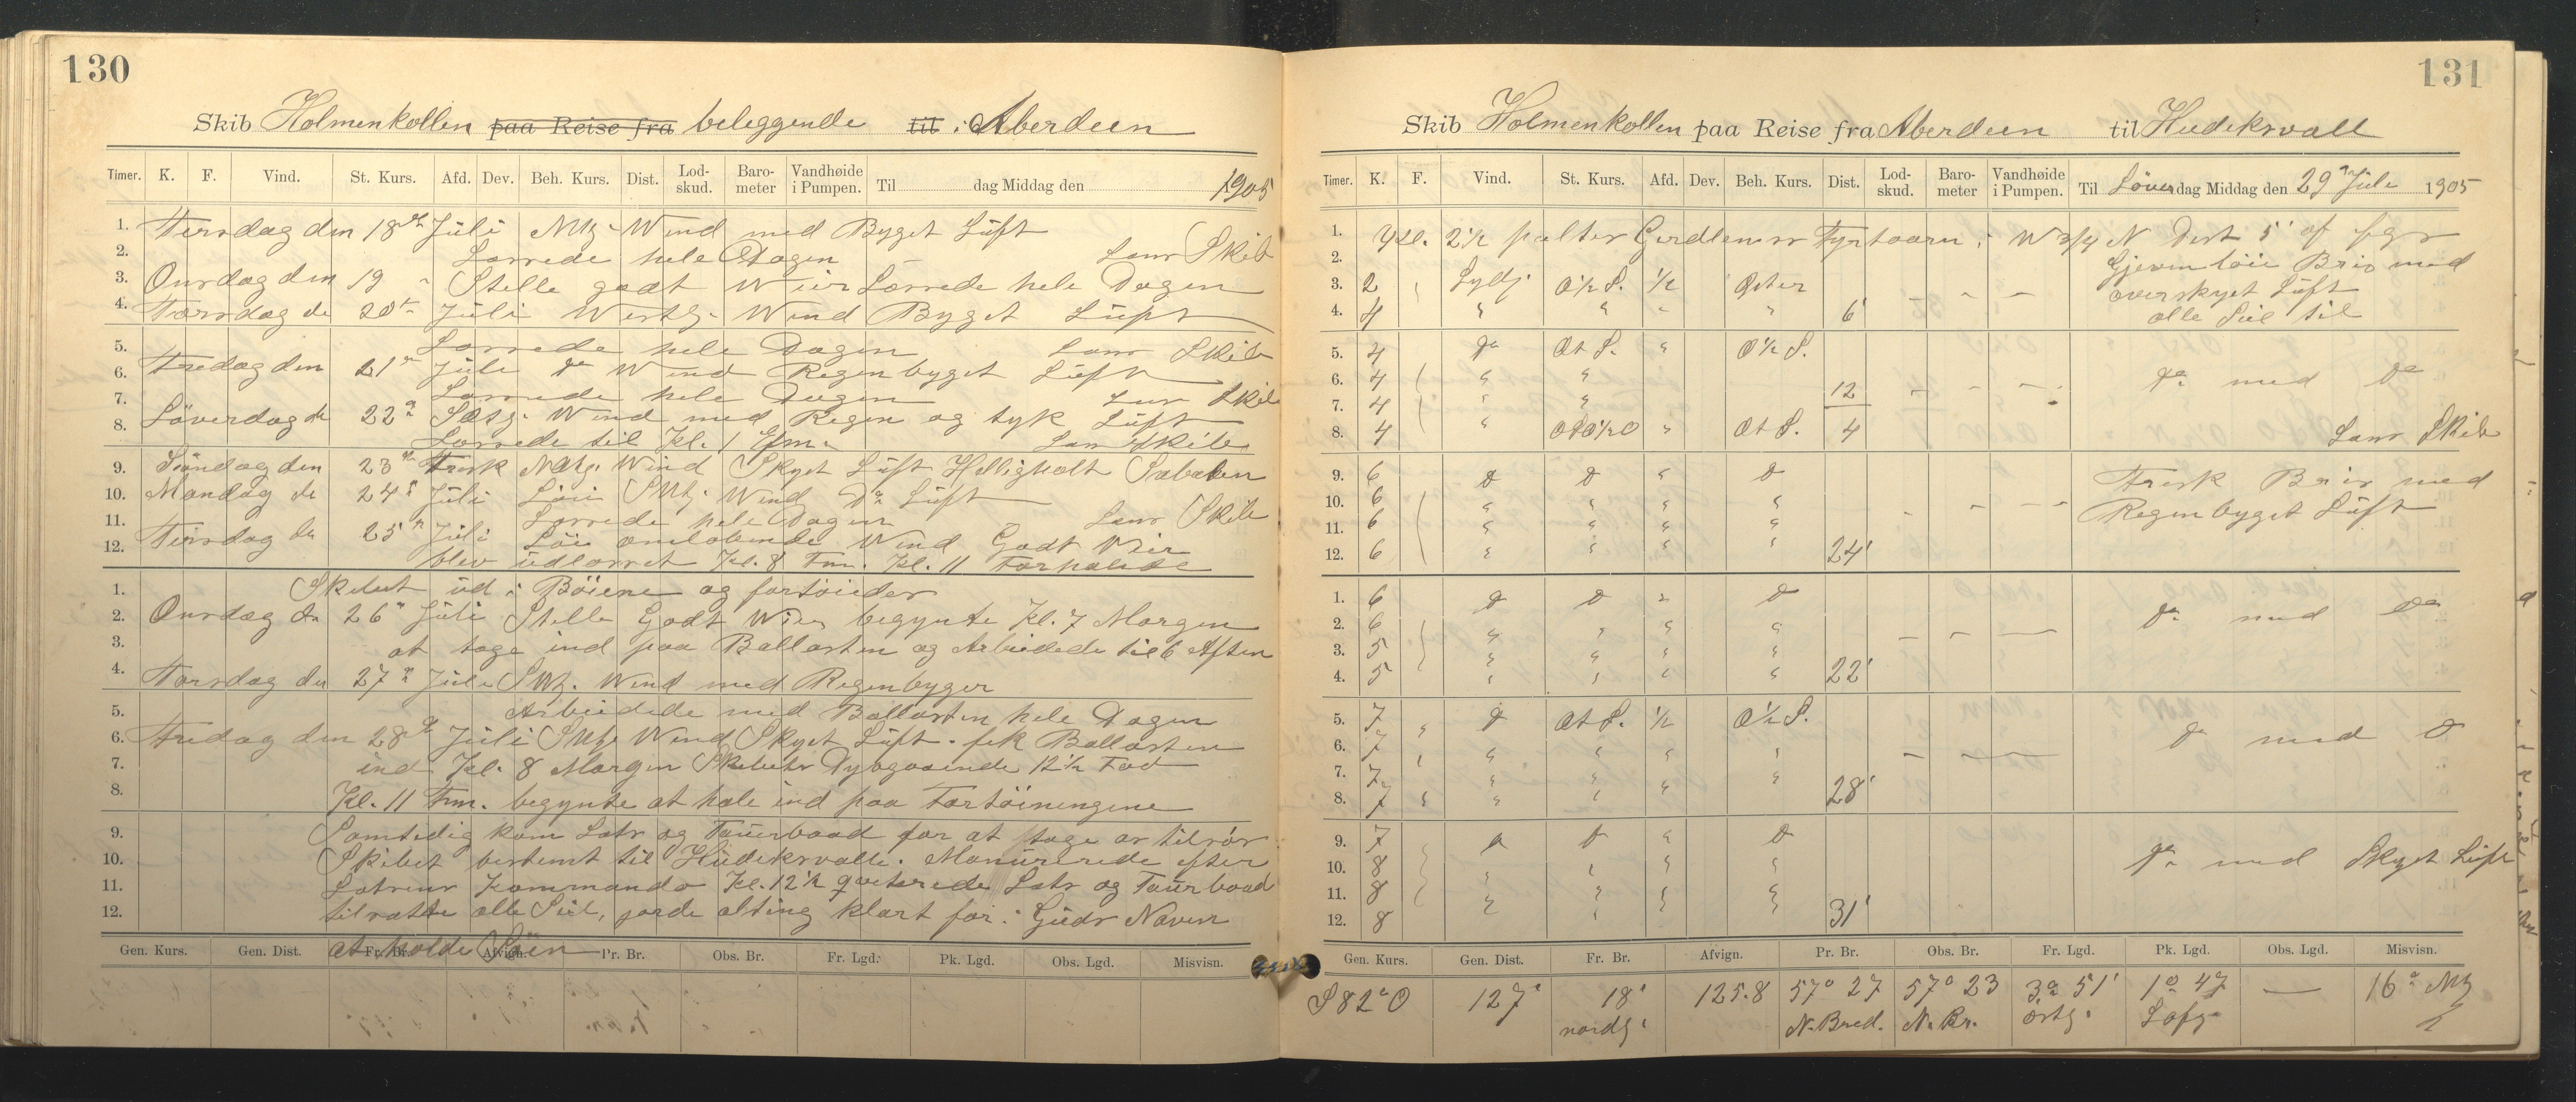 130
Skib Holmenkollen paa Reise fra beleggende til i Aberdeen
Timer. K. F. Vind. St. Kurs. Afd. Dev. Beh. Kurs. Dist. Lod-skud. Baro-meter Vandhøide i Pumpen. Til dag Middag den 1905
1. Tirsdag den 18de Juli NWg. Wind med Byget Lüft
2. Lossede hele Dagen Lens Skib
3. Onsdag den 19 " Stelle godt Weir Lossede hele Dagen
4. Torsdag de 20de Juli Westg. Wind Byget Lüft
5. Lossede hele Dagen Lens Skib
6. Fredag den 21de Juli do Wind Regenbyget Lüft
7. Lossede hele Dagen Lens Skib
8. Löverdag de 22de Wind med Regen og tyk Lüft
Lossede til Kl. 1 Efm. Lens Skib
9. Söndag den 23de Frisk Wind Skyet Lüft Helligholt Sabaten
10. Mandag de 24de Juli Löii SWg. Wind Do Lüft
11. Lossede hele Dagen Lens Skib
12. Tirsdag de 25de Juli Löie omlobende Wind Godt Veir
blev udlosset Kl. 8 Fm. Kl. 11 Forhalede
1. Skibet ud i Böiene og fortöieder
2. Onsdag de 26de Juli Stelle Godt Wier begynte Kl. 7 Morgen
3. at tage ind paa Ballasten og Arbeidede til 6 Aften
4. Torsdag de 27de Juli SWg. Wind med Regenbyger
5. Arbeidede med Ballasten hele Dagen
6. Fredag den 28de Juli SWg Wind Skyet Lüft. fik Ballasten
7. ind Kl. 8 Morgen Skibets Dybgaaende 12½ Fod
8. Kl. 11 Fm. begynte at hale ind paa Fortöiningene
9. Samtidig kom Lots og Tauerbaad for at tage os tilsös
10. Skibet bestemt til Hudeksvalle. Manurerede efter
11. Lotsens Kommando Kl. 12½ qviterede Lots og Tauerbaad
12. tilsatte alle Siel, gorde alting klart for i Guds Naven
at holde Söen
Gen. Kurs. Gen. Dist. Fr. Br. Afvign. Pr. Br. Obs. Br. Fr. Lgd. Pk. Lgd. Obs. Lgd. Misvisn.
131
Skib Holmenkollen paa Reise fra Aberdeen til Hudeksvall
Timer. K. F. Vind. St. Kurs. Afd. Dev. Beh. Kurs. Dist. Lod-skud. Baro-meter Vandhøide i Pumpen. Til Löverdag Middag den 29de Juli 1905
1. Kl. 2½ peilter Girdleness Fyrtaarn i W 3/4 N Dist 5' af
2. Gjevn löie Bris med
3. 2 Sydlg O½S. ½ Öster overskyet Lüft
4. 4 " " " " 6' alle Siel til
5. 4 do Ot S. " O½S.
6. 4 " " do med do
7. 4 " " 12
8. 4 " OtO½O " Ot S. 4 Lens Skib
9. 6 do do " do Frisk Bris med
10. 6 " " " " Regenbyget Lüft
11. 6 " " " "
12. 6 " " " " 24'
1. 6 do do " do do med do
2. 6 " " " "
3. 5 " " " "
4. 5 " " " " 22'
5. 7 do Ot S. ½ O½S.
6. 7 " " " " do med do
7. 7 " " " "
8. 7 " " " 28'
9. 7 do do " do do med Skyet Lüft
10. 8 " " " "
11. 8 " " " "
12. 8 " " 31'
Gen. Kurs. Gen. Dist. Fr. Br. Afvign. Pr. Br. Obs. Br. Fr. Lgd. Pk. Lgd. Obs. Lgd. Misvisn.
S82°O 127' 18' nordg. 125.8 57° 27 N. Bred. 57° 23 N. Br. 3° 51' östg. 1° 47 — 16° Wg